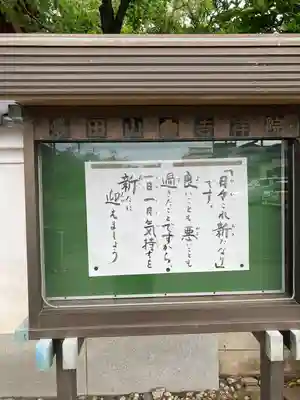 「日々之れ新たなり」
です。
良いことも悪いことも
過ぎたことですから、
一日一日気持ちを
新たに
迎えましょう